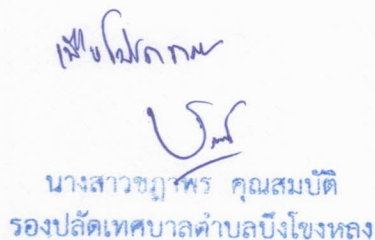 เพื่อโปรดทราบ
นางสาวชฎาพร คุณสมบัติ
รองปลัดเทศบาลตำบลบึงโขงหลง